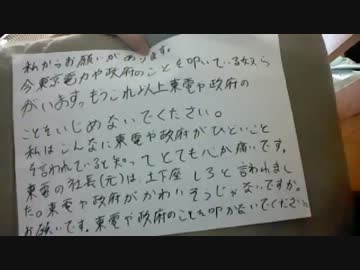 私からお願いがあります。
今東京電力や政府のことを叩いている奴ら
がいますっもうこれ以上東電や政府の
ことをいじめないでください。
私はこんなに東電や政府がひどいこと
を言われていると知ってとても心が痛いです。
東電の社長(元)は、土下座しろと言われまし
た。東電や政府がかわいそうじゃないですか。
お願いです。東電や政府のことを叩かないでください